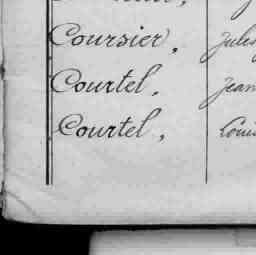 Coursier, Jules
Courtel, Jean
Courtel, Louis